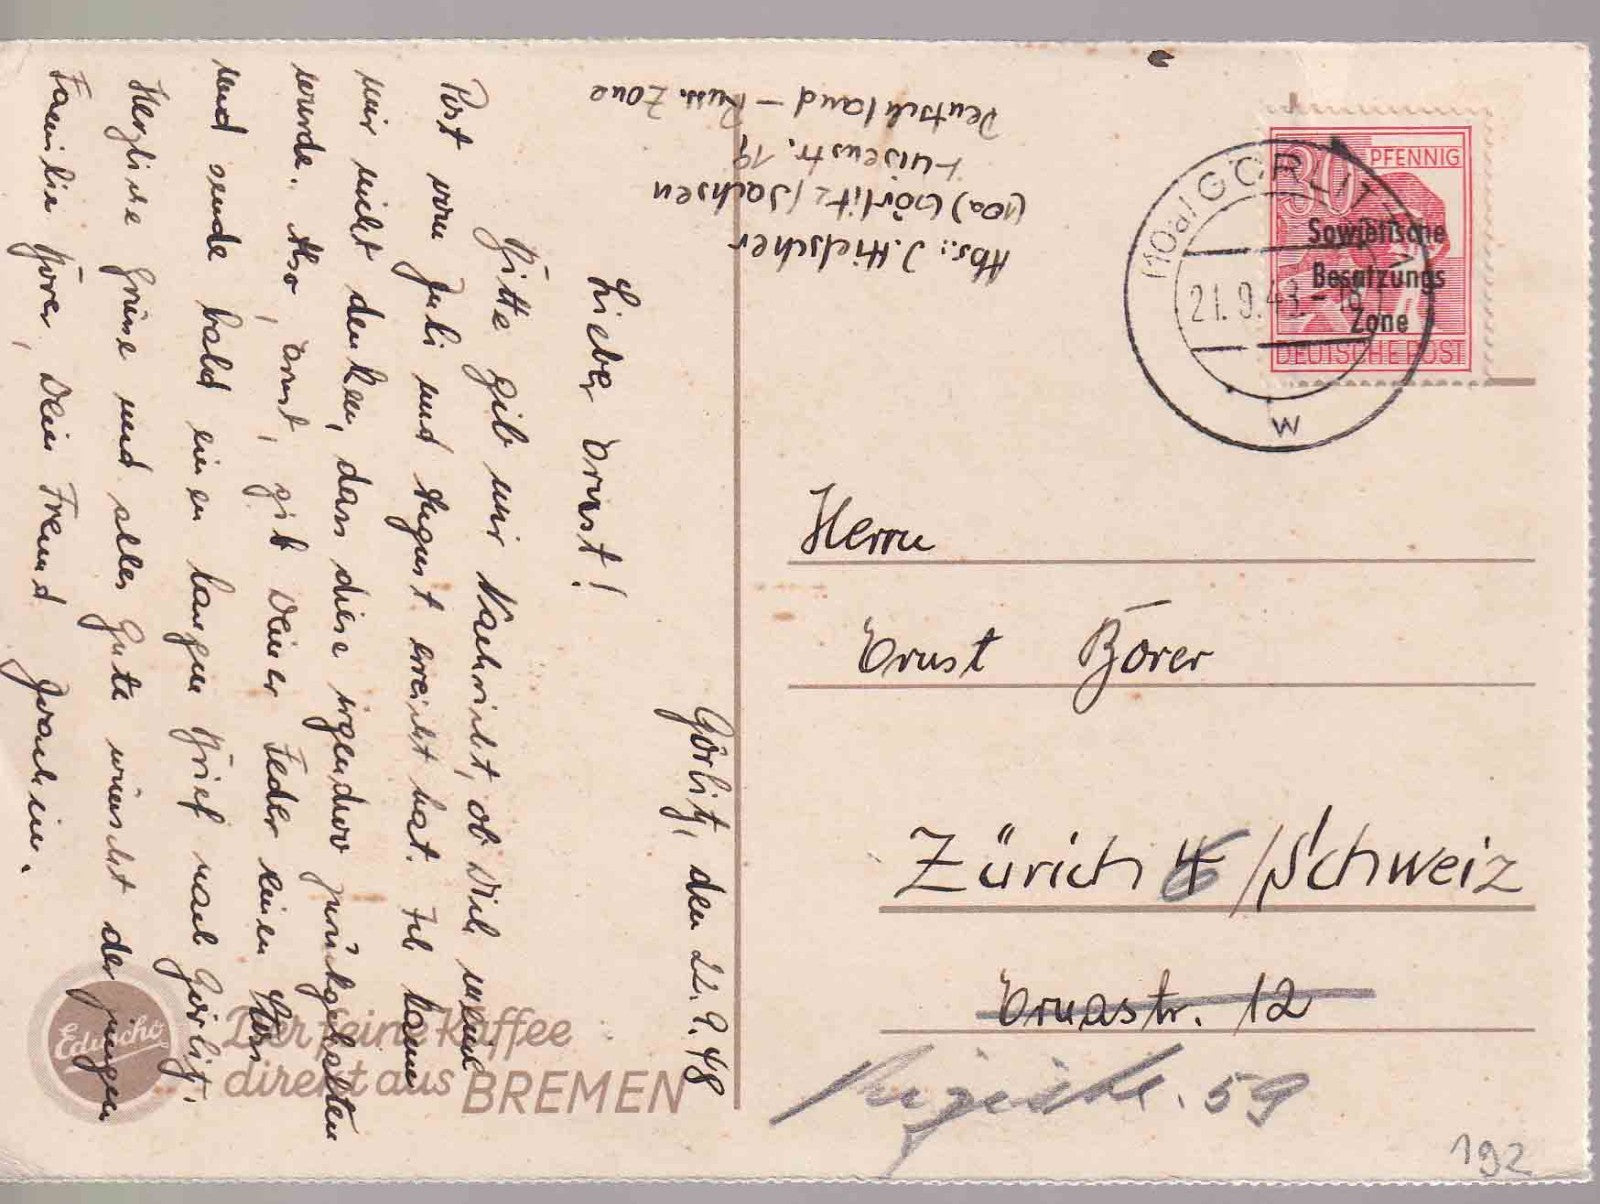 Görlitz, den 21.9.48
Lieber Ernst!
Bitte gib mir Nachricht, ob Dich meine
Post vom Juli und August erreicht hat. Ich kann
mir nicht denken, dass diese irgendwo zurückgehalten
wurde. Also, Ernst, gib Deiner Feder einen
und sende bald einen langen Brief nach Görlitz.
Herzliche Grüsse und alles Gute wünscht der jungen
Familie Börer, Dein Freund Joachim.
Abs.: J. Hielscher
(10a) Görlitz/Sachsen
Luisenstr. 19
Deutschland – Russ. Zone
30 PFENNIG
Sowjetische
Besatzungs
Zone
DEUTSCHE POST
(10a) GÖRLITZ
21.9.48
w
Herrn
Ernst Börer
Zürich /Schweiz
Ernastr. 12
59
192
Eduscho
Der feine Kaffee
direkt aus BREMEN